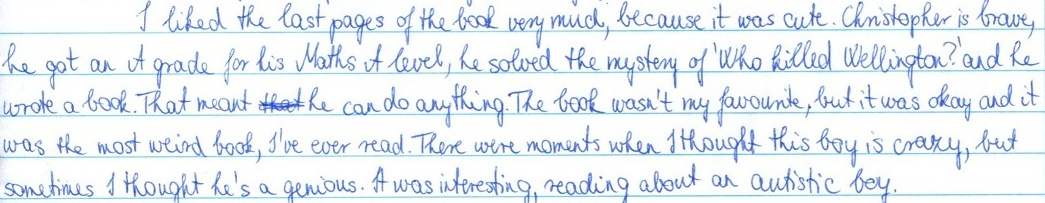 I liked the last pages of the book very much, because it was cute. Christopher is brave,
he got an A grade for his Maths A level, he solved the mystery of 'Who killed Wellington?' and he
wrote a book. That meant that he can do anything. The book wasn't my favourite, but it was okay and it
was the most weird book, I've ever read. There were moments when I thought this boy is crazy, but
sometimes I thought he's a genious. It was interesting, reading about an autistic boy.